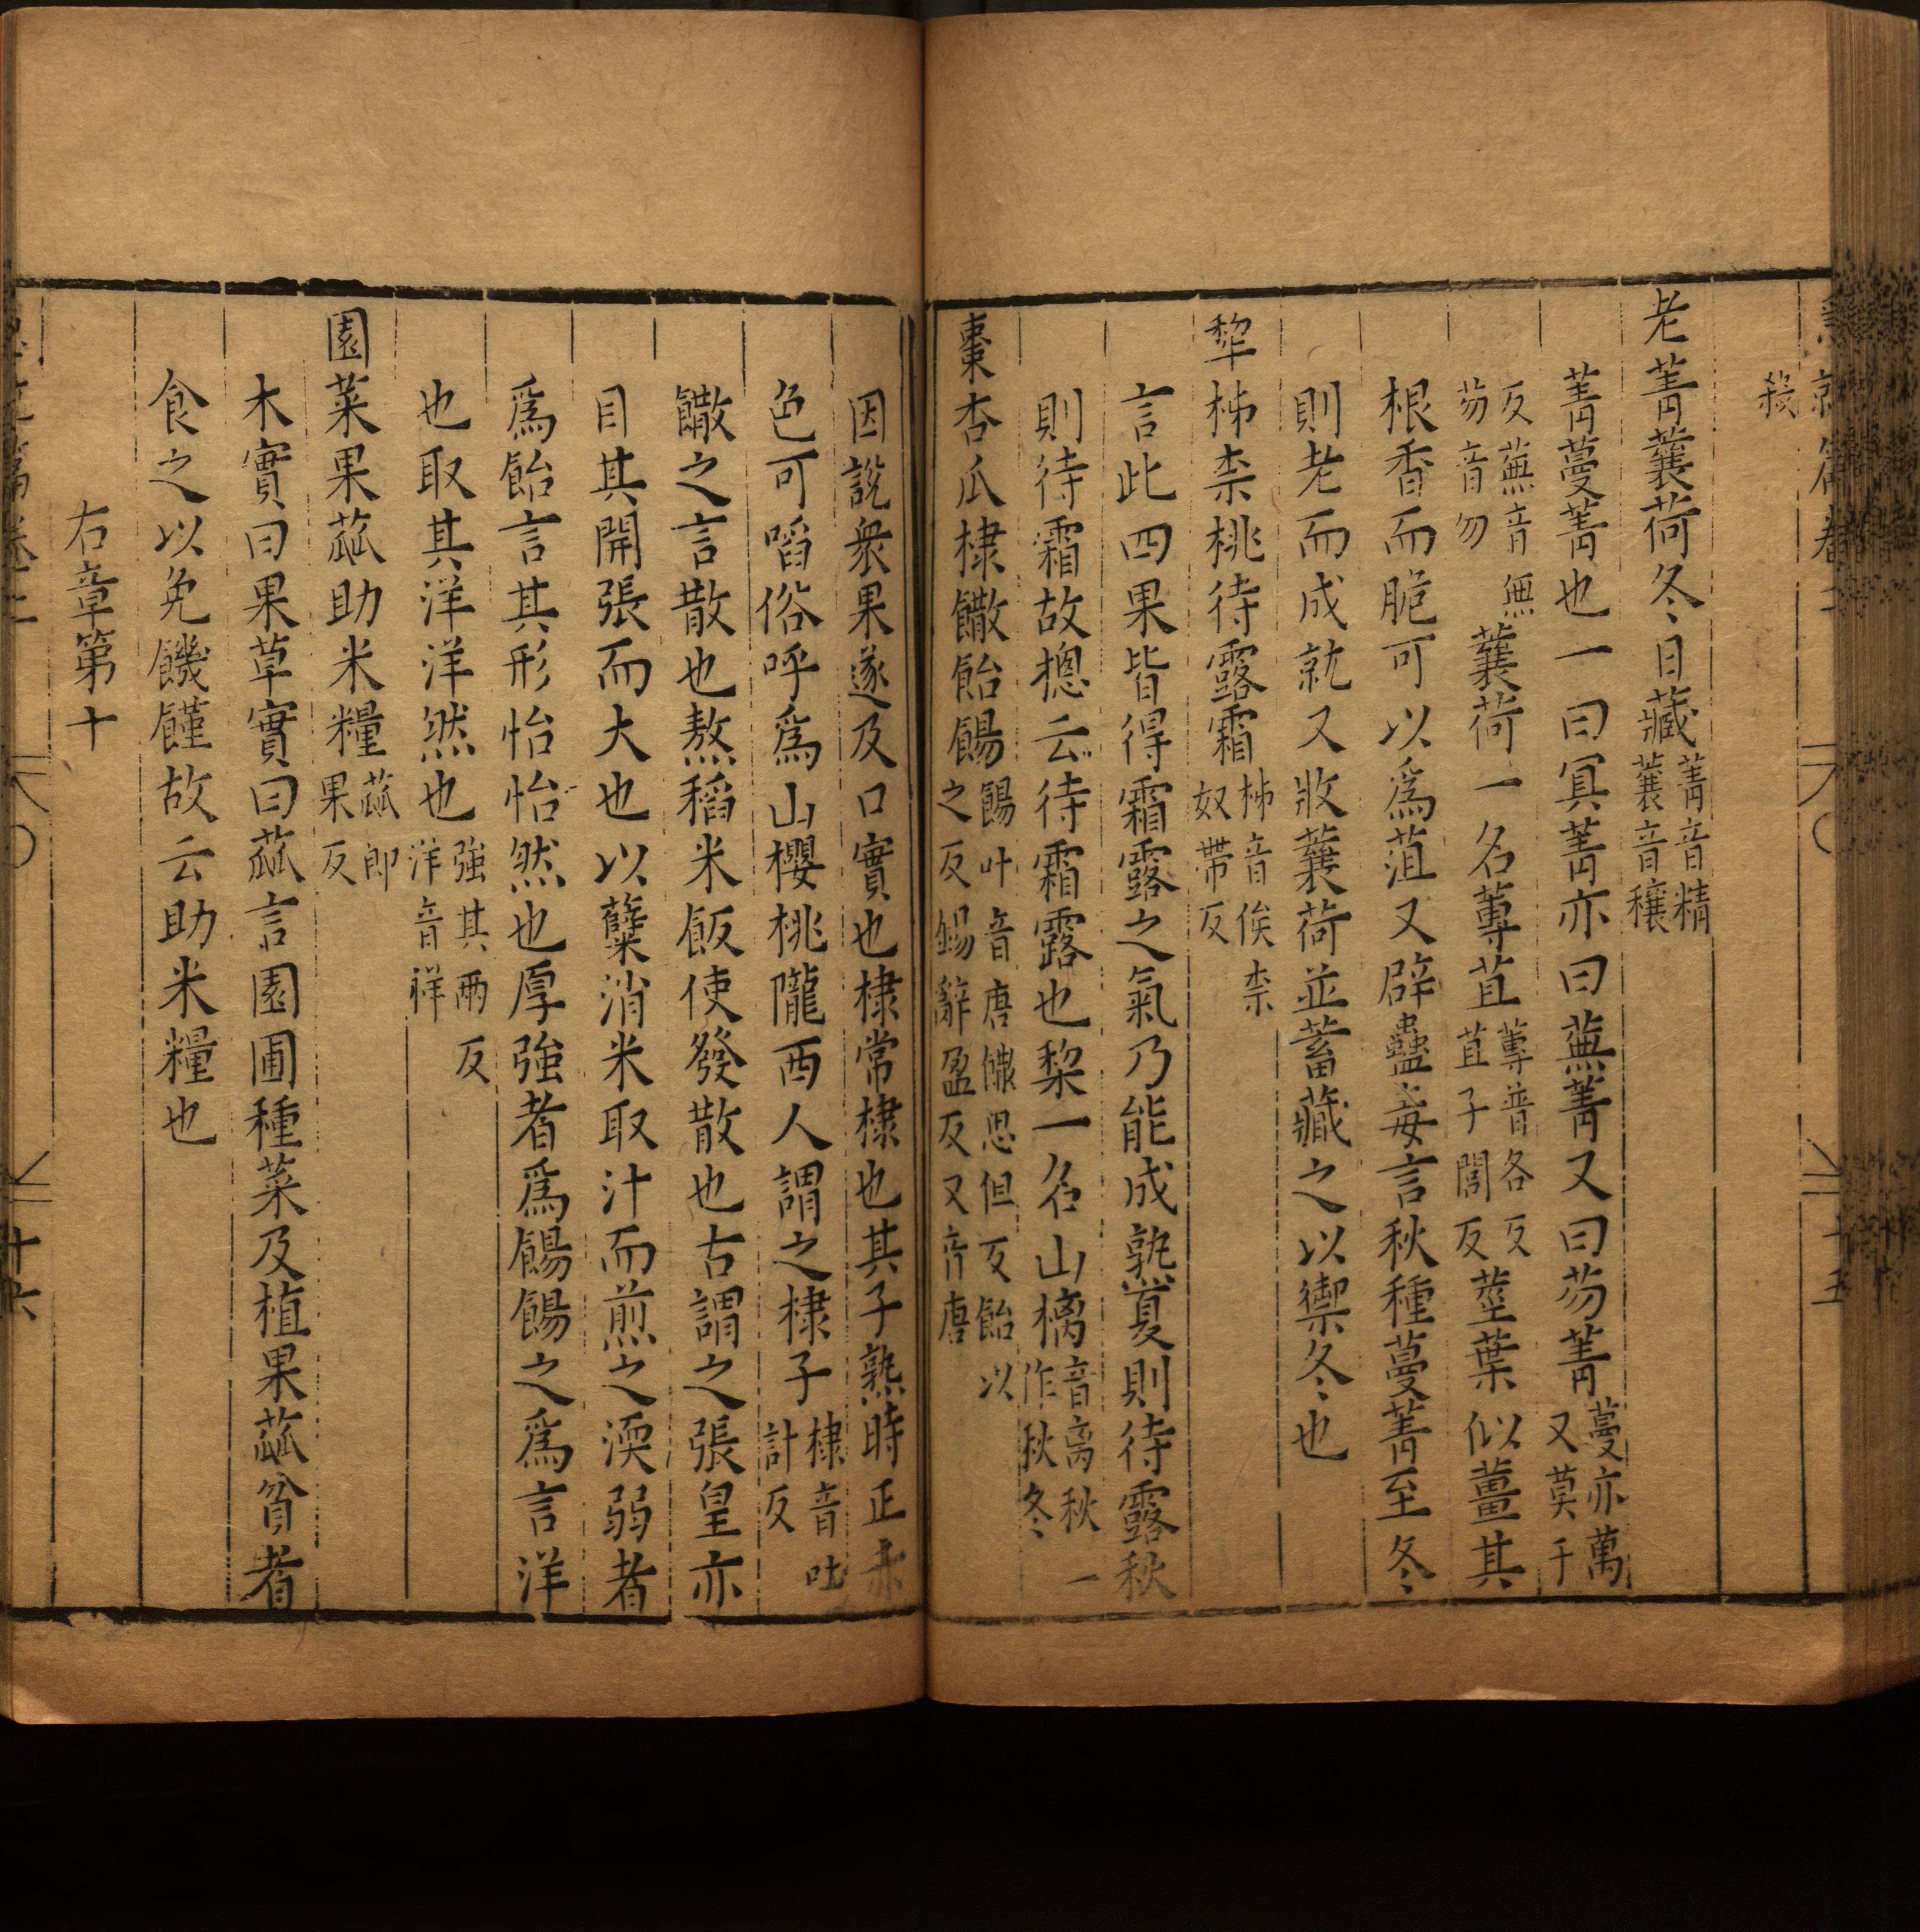 急就篇卷二 十五
毅
老菁蘘荷冬日藏菁音精蘘音穰
菁蔓菁也一曰冥菁亦曰蕪菁又曰芴菁蔓亦萬又莫千
反蕪音無芴音勿蘘荷一名蒪苴蒪普各反苴子閭反莖葉似薑其
根香而脆可以爲菹又辟蠱毒言秋種蔓菁至冬
則老而成就又收蘘荷並蓄藏之以禦冬也
犂柹柰桃待露霜柹音俟柰奴帶反
言此四果皆得霜露之氣乃能成孰夏則待露秋
則待霜故摠云待霜露也棃一名山樆音离秋一作秋冬
棗杏瓜棣饊飴餳餳叶音唐饊思但反飴以之反餳辭盈反又音唐
因說衆果遂及口實也棣常棣也其子熟時正赤
色可啗俗呼爲山櫻桃隴西人謂之棣子棣音吐計反
饊之言散也熬稻米飯使發散也古謂之張皇亦
目其開張而大也以糵消米取汁而煎之渜弱者
爲飴言其形怡怡然也厚強者爲餳餳之爲言洋
也取其洋洋然也強其兩反洋音祥
園菜果蓏助米糧蓏郎果反
木實曰果草實曰蓏言園圃種菜及植果蓏貧者
食之以免饑饉故云助米糧也
右章第十
急就篇卷二 十六